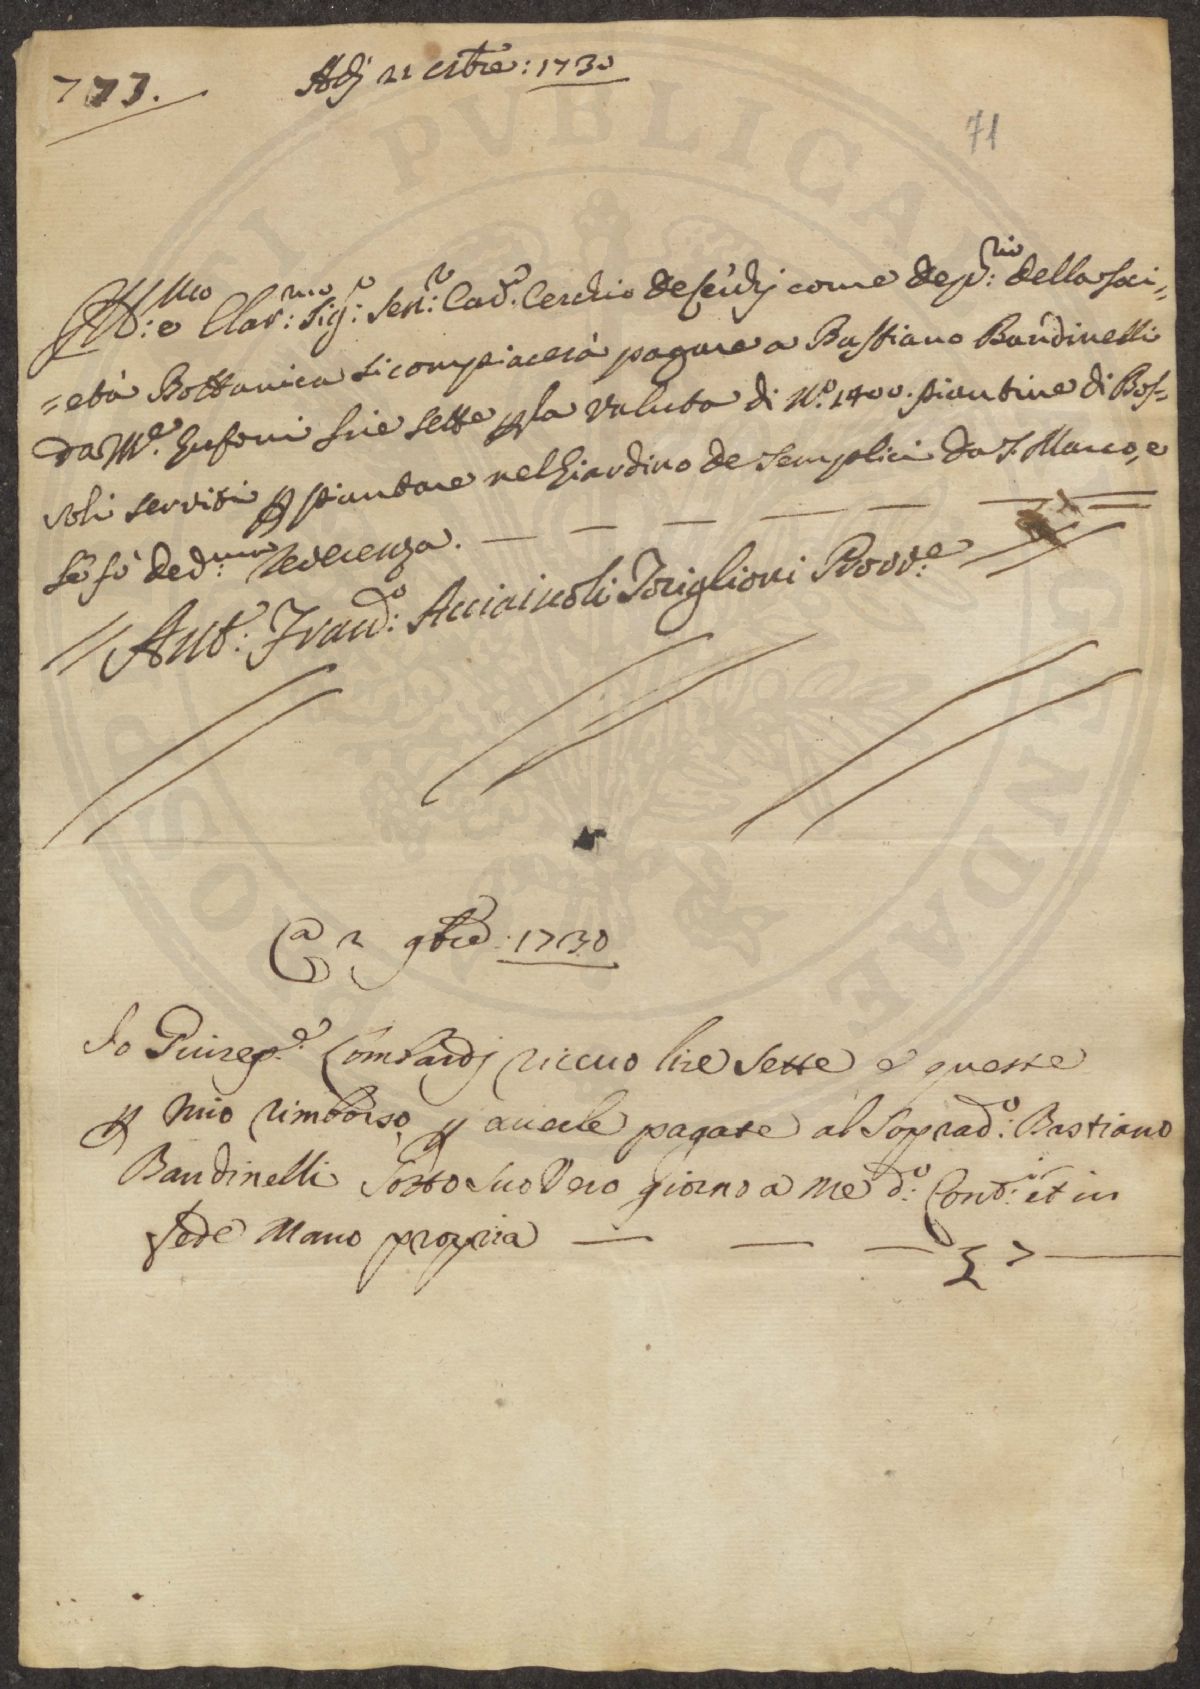 773.
Adj 21 8bre: 1730
71
Ill:mo e Clar:mo Sig:r Sen:r Cav:r Cerchio de Cerchj come dep:rio della Soci=
=età Bottanica si compiacerà pagare a Bastiano Bandinelli
da M.e lire sette p la valuta di N.o 1400. piantine di Bos=
soli serviti p piantare nel Giardino de Semplici da S. Marco, e
se fà ded:
// Ant: Fran:co Acciaiuoli Toriglioni Prov:re
A 2 9bre: 1730
Io Giusep:e Lombardj riceuo lire Sette e queste
p mio rimborso p auerle pagate al Soprad:o Bastiano
Bandinelli Sotto Suo Vero giorno a me d:o Cont:i et in
fede Mano propria
£ 7
PVBLICAE